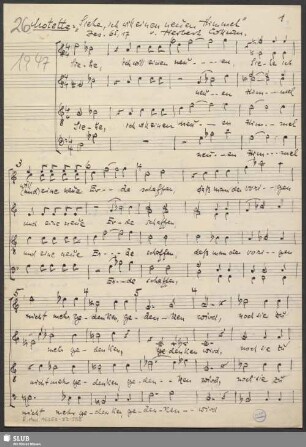 26 Motette: "Siehe, ich will einen neuen Himmel" 1.
Jes. 65, 17 v. Herbert Collum.
1947
Sie-he, ich will einen neu----en Sie-he ich
neu--en Him---mel
Sie-he, ich will einen neu--en Him---mel
neu--en Him---mel
und eine neue Er---de schaffen, daß man der vori-gen
und eine neue Er--de schaffen
und eine neue Er---de schaffen, daß man der vori--gen
und eine neue Er---de schaffen,
nicht mehr ge-den-ken ge-den--ken wird, noch sie zu
mehr gedenken, gedenken wird, noch sie zu
nicht mehr gedenken, ge-den--ken wird, noch sie zu
nicht mehr ge-den-ken gedenken--wird
SLUB